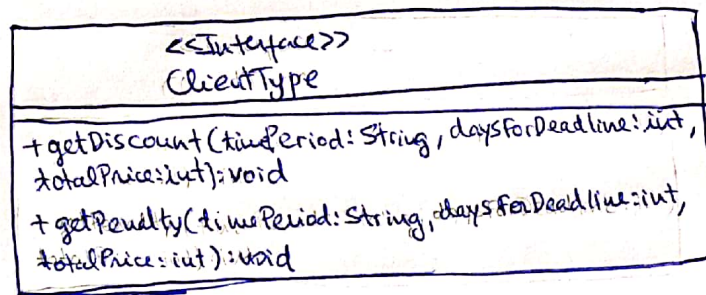 <<Interface>>
ClientType
+getDiscount(timePeriod: String, daysForDeadline: int,
totalPrice: int): void
+getPenalty(timePeriod: String, daysForDeadline: int,
totalPrice: int): void